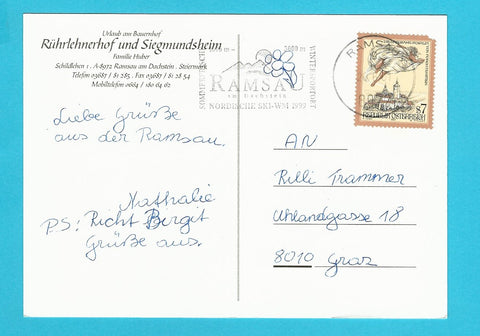 Urlaub am Bauernhof
Rührlehnerhof und Siegmundsheim
Familie Huber
Schildlehen 1, A-8972 Ramsau am Dachstein, Steiermark
Telefon 03687 / 81 285, Fax 03687 / 81 28 54
Mobiltelefon 0664 / 180 64 62
WINTERSPORTORT
RAMSAU
am Dachstein
NORDISCHE SKI-WM 1999
RAMSAU
s7
REPUBLIK ÖSTERREICH
Liebe Grüße
aus der Ramsau.
Nathalie
PS: Richt Birgit
Grüße aus.
AN
Rilli Trammer
Uhlandgasse 18
8010 Graz